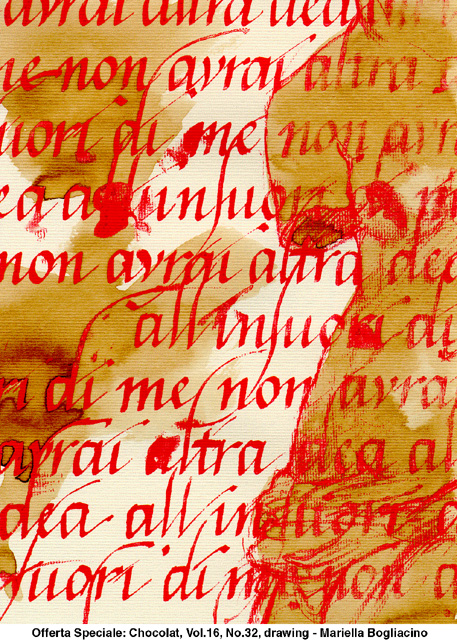 avrai altra dea
me non avrai altra
uori di me non avr
ea all'infuori di m
non avrai altra dea
all'infuori di
ri di me non avrai
avrai altra dea al
dea all'infuori d
fuori di me non a
Offerta Speciale: Chocolat, Vol.16, No.32, drawing - Mariella Bogliacino